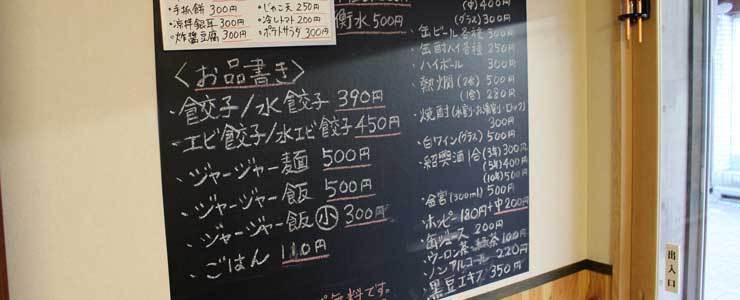 ・手抓餅 300円
・涼拌銀耳 300円
・炸醬豆腐 300円
・じゃこ天 250円
・冷しトマト 200円
・ポテトサラダ 300円
衡水 500円
<お品書き>
・餃子/水餃子 390円
・エビ餃子/水エビ餃子 450円
・ジャージャー麺 500円
・ジャージャー飯 500円
・ジャージャー飯 小 300円
・ごはん 110円
無料です。
(中)400円
(グラス)300円
・缶ビール各種 300円
・缶酎ハイ各種 250円
・ハイボール 300円
・熱燗(2合)500円
(1合)280円
・焼酎(水割・お湯割・ロック)
300円
・白ワイン(グラス)500円
・紹興酒1合(3年)300円
(5年)400円
(10年)500円
(300ml)500円
・ホッピー 180円+中200円
・缶ジュース 200円
・ウーロン茶・緑茶 100円
・ノンアルコール 220円
・黒豆エキス 350円
出入口